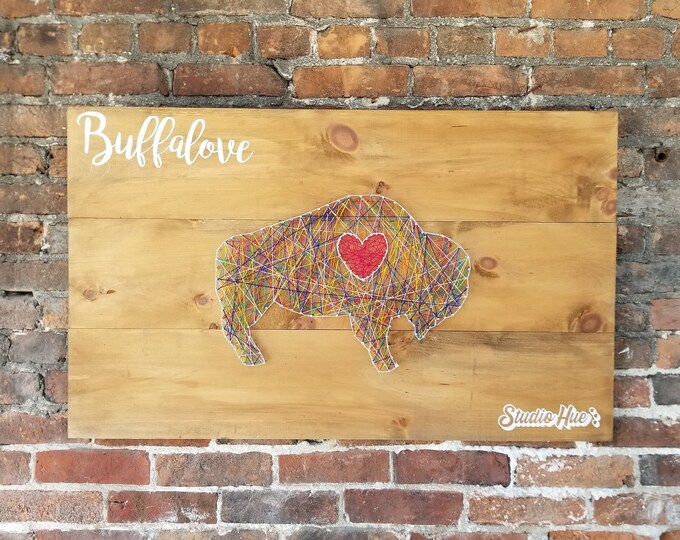 Buffalove
Studio Hue